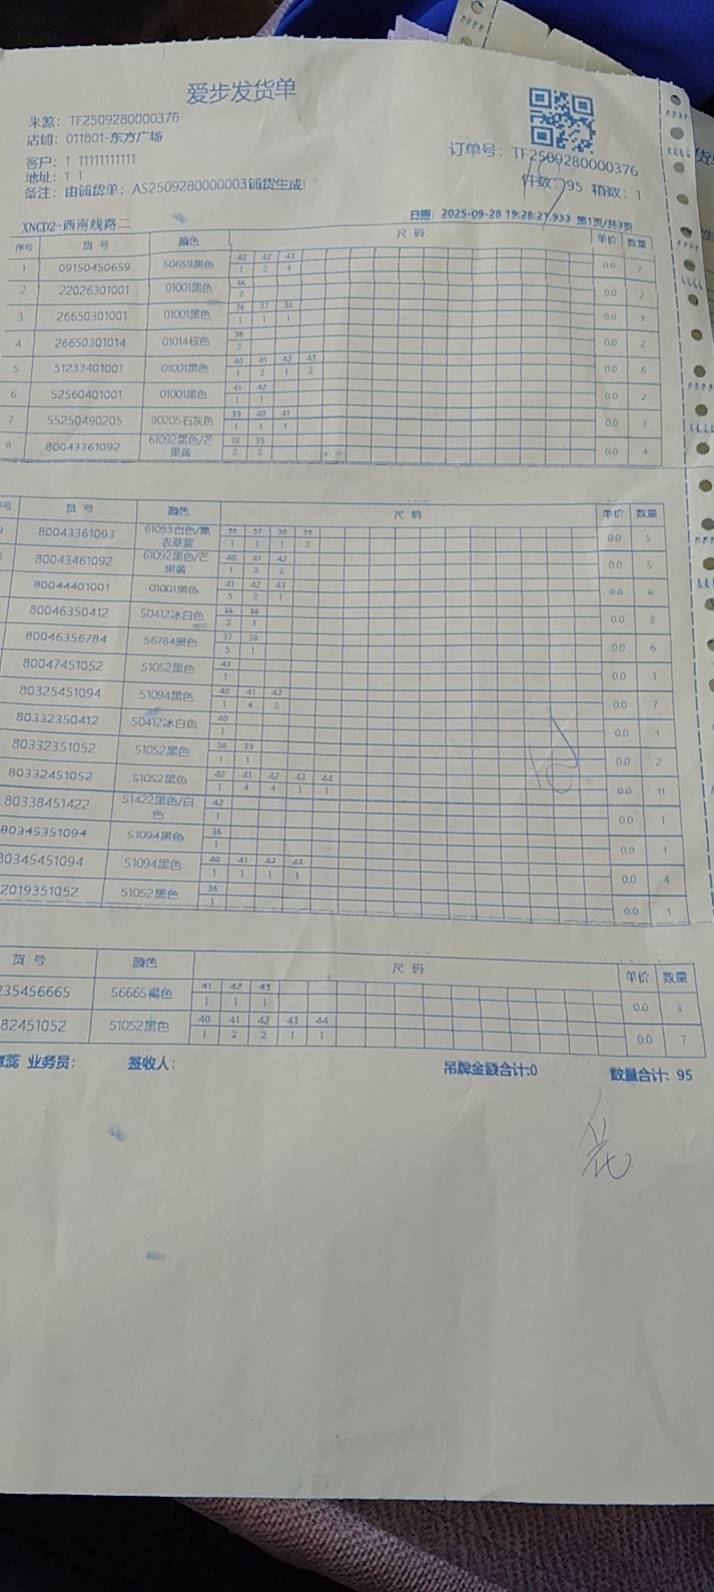 爱步发货单
来源: TF2509280000376
店铺: 011801-东方广场
订单号: TF2509280000376
客户: 1 11111111111
地址: 1 1
件数: 95 箱数: 1
备注: 由铺货单: AS2509280000003铺货生成!
XNCD2-西南线路二
日期: 2025-09-28 19:28:27.933 第1页/共3页
序号 货 号 颜色 尺 码 单价 数量
40 42 43
1 09150450659 50659黑色 1 2 4 0.0 7
2 22026301001 01001黑色 2 0.0 2
36 37 38
3 26650301001 01001黑色 1 1 1 0.0 3
36
4 26650301014 01014棕色 2 0.0 2
40 41 42 43
5 51233401001 01001黑色 1 2 1 2 0.0 6
41 42
6 52560401001 01001黑色 1 1 0.0 2
39 40 41
7 55250490205 90205石灰色 1 1 1 0.0 3
38 39
8 80043361092 61092黑色/芒果黄 2 2 0.0 4
货 号 颜色 尺 码 单价 数量
37 38 39
80043361093 61093白色/薰衣草紫 1 1 1 2 0.0 5
40 41 42
80043461092 61092黑色/芒果黄 1 2 2 0.0 5
41 42 43
80044401001 01001黑色 2 1 0.0
80046350412 50412冰白色 2 1 0.0 3
37 38
80046356784 56784黑色 5 1 0.0 6
80047451052 51052黑色 1 0.0 1
40 41 42
80325451094 51094黑色 1 4 2 0.0 7
40
80332350412 50412冰白色 1 0.0 1
38 39
80332351052 51052黑色 1 1 0.0 2
40 41 42 43 44
80332451052 51052黑色 1 4 4 1 1 0.0 11
42
80338451422 51422黑色/白色 1 0.0 1
36
80345351094 51094黑色 1 0.0 1
40 41 42 43
80345451094 51094黑色 1 1 1 1 0.0 4
36
2019351052 51052黑色 1 0.0 1
货 号 颜色 尺 码 单价 数量
41 42 43
235456665 56665褐色 1 1 1 0.0 3
40 41 42 43 44
82451052 51052黑色 1 2 2 1 1 0.0 7
蕊 业务员: 签收人: 吊牌金额合计:0 数量合计: 95